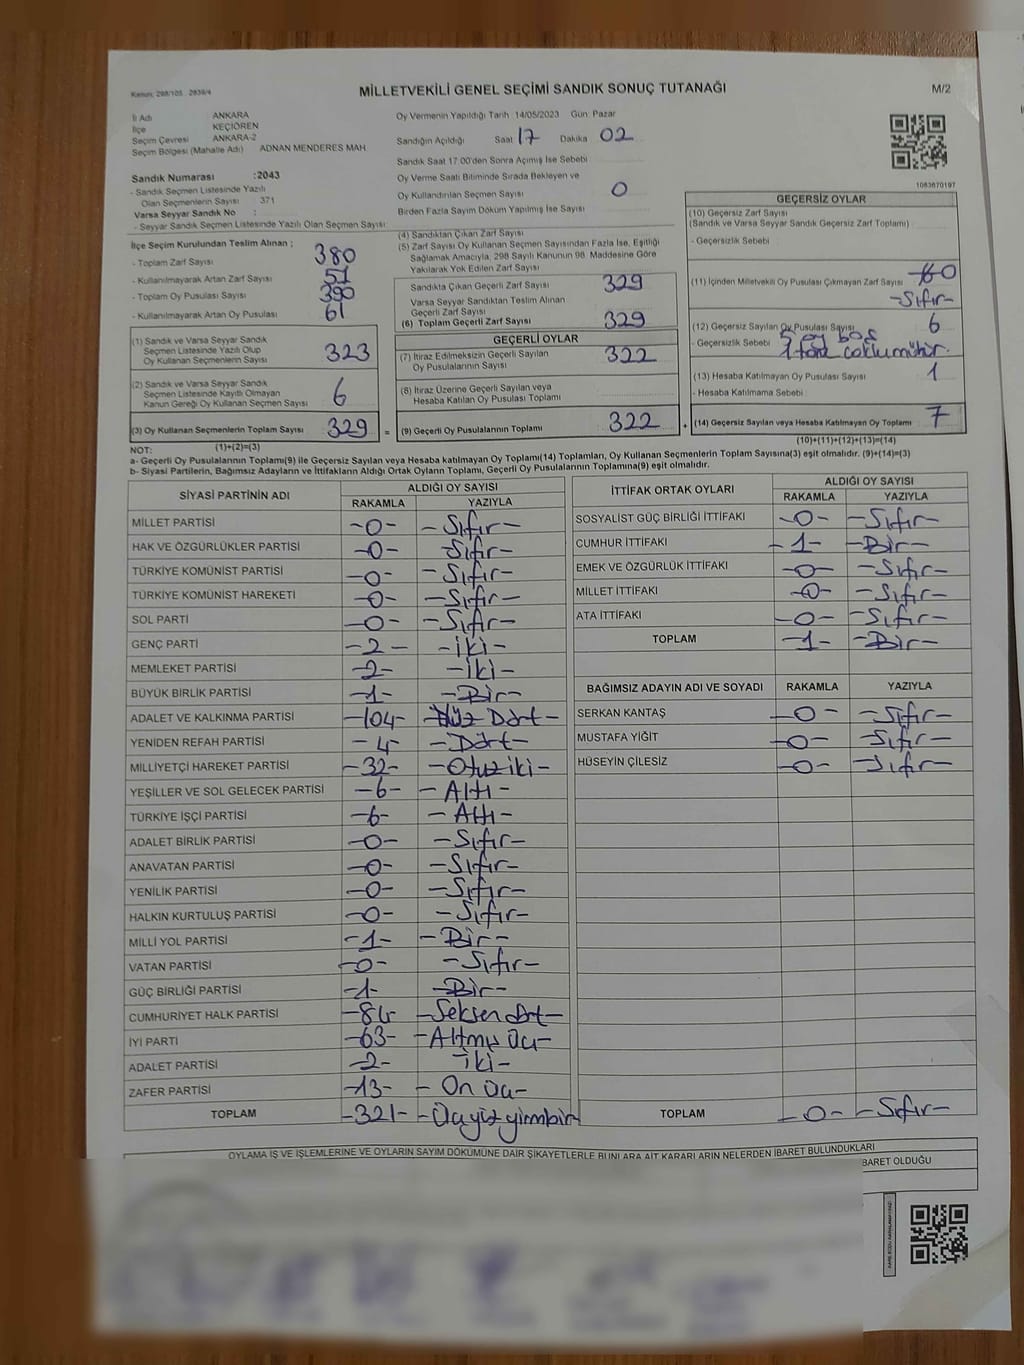 Kanun: 298/105 . 2839/4
MİLLETVEKİLİ GENEL SEÇİMİ SANDIK SONUÇ TUTANAĞI
M/2
İl Adı ANKARA
İlçe KEÇİÖREN
Seçim Çevresi ANKARA-2
Seçim Bölgesi (Mahalle Adı) ADNAN MENDERES MAH.
Sandık Numarası :2043
- Sandık Seçmen Listesinde Yazılı
Olan Seçmenlerin Sayısı 371
Varsa Seyyar Sandık No :
- Seyyar Sandık Seçmen Listesinde Yazılı Olan Seçmen Sayısı
Oy Vermenin Yapıldığı Tarih 14/05/2023 Gün: Pazar
Sandığın Açıldığı Saat 17 Dakika 02
Sandık Saat 17:00'den Sonra Açmış İse Sebebi
Oy Verme Saati Bitiminde Sırada Bekleyen ve
Oy Kullandırılan Seçmen Sayısı 0
Birden Fazla Sayım Döküm Yapılmış İse Sayısı
1083670197
İlçe Seçim Kurulundan Teslim Alınan ;
- Toplam Zarf Sayısı 380
- Kullanılmayarak Artan Zarf Sayısı 51
- Toplam Oy Pusulası Sayısı 390
- Kullanılmayarak Artan Oy Pusulası 61
(1) Sandık ve Varsa Seyyar Sandık
Seçmen Listesinde Yazılı Olup
Oy Kullanan Seçmenlerin Sayısı 323
(2) Sandık ve Varsa Seyyar Sandık
Seçmen Listesinde Kayıtlı Olmayan
Kanun Gereği Oy Kullanan Seçmen Sayısı 6
(3) Oy Kullanan Seçmenlerin Toplam Sayısı 329 =
(1)+(2)=(3)
(4) Sandıktan Çıkan Zarf Sayısı
(5) Zarf Sayısı Oy Kullanan Seçmen Sayısından Fazla İse, Eşitliği
Sağlamak Amacıyla, 298 Sayılı Kanunun 98. Maddesine Göre
Yakılarak Yok Edilen Zarf Sayısı
Sandıkta Çıkan Geçerli Zarf Sayısı 329
Varsa Seyyar Sandıktan Teslim Alınan
Geçerli Zarf Sayısı
(6) Toplam Geçerli Zarf Sayısı 329
GEÇERLİ OYLAR
(7) İtiraz Edilmeksizin Geçerli Sayılan
Oy Pusulalarının Sayısı 322
(8) İtiraz Üzerine Geçerli Sayılan veya
Hesaba Katılan Oy Pusulası Toplamı
(9) Geçerli Oy Pusulalarının Toplamı 322 +
GEÇERSİZ OYLAR
(10) Geçersiz Zarf Sayısı
(Sandık ve Varsa Seyyar Sandık Geçersiz Zarf Toplamı)
- Geçersizlik Sebebi
(11) İçinden Milletvekili Oy Pusulası Çıkmayan Zarf Sayısı 0
-Sıfır-
(12) Geçersiz Sayılan Oy Pusulası Sayısı 6
- Geçersizlik Sebebi 5 oy boş
1 tane çoklu mühür.
(13) Hesaba Katılmayan Oy Pusulası Sayısı 1
- Hesaba Katılmama Sebebi
(14) Geçersiz Sayılan veya Hesaba Katılmayan Oy Toplamı 7
(10)+(11)+(12)+(13)=(14)
NOT:
a- Geçerli Oy Pusulalarının Toplamı(9) ile Geçersiz Sayılan veya Hesaba Katılmayan Oy Toplamı(14) Toplamları, Oy Kullanan Seçmenlerin Toplam Sayısına(3) eşit olmalıdır. (9)+(14)=(3)
b- Siyasi Partilerin, Bağımsız Adayların ve İttifakların Aldığı Ortak Oyların Toplamı, Geçerli Oy Pusulalarının Toplamına(9) eşit olmalıdır.
SİYASİ PARTİNİN ADI ALDIĞI OY SAYISI
RAKAMLA YAZIYLA
MİLLET PARTİSİ -0- -Sıfır-
HAK VE ÖZGÜRLÜKLER PARTİSİ -0- -Sıfır-
TÜRKİYE KOMÜNİST PARTİSİ -0- -Sıfır-
TÜRKİYE KOMÜNİST HAREKETİ -0- -Sıfır-
SOL PARTİ -0- -Sıfır-
GENÇ PARTİ -2- -İki-
MEMLEKET PARTİSİ -2- -İki-
BÜYÜK BİRLİK PARTİSİ -1- -Bir-
ADALET VE KALKINMA PARTİSİ -104- -Yüz Dört-
YENİDEN REFAH PARTİSİ -4- -Dört-
MİLLİYETÇİ HAREKET PARTİSİ -32- -Otuziki-
YEŞİLLER VE SOL GELECEK PARTİSİ -6- -Altı-
TÜRKİYE İŞÇİ PARTİSİ -6- -Altı-
ADALET BİRLİK PARTİSİ -0- -Sıfır-
ANAVATAN PARTİSİ -0- -Sıfır-
YENİLİK PARTİSİ -0- -Sıfır-
HALKIN KURTULUŞ PARTİSİ -0- -Sıfır-
MİLLİ YOL PARTİSİ -1- -Bir-
VATAN PARTİSİ -0- -Sıfır-
GÜÇ BİRLİĞİ PARTİSİ -1- -Bir-
CUMHURİYET HALK PARTİSİ -84- -Seksen dört-
İYİ PARTİ -63- -Altmış Üç-
ADALET PARTİSİ -2- İki-
ZAFER PARTİSİ -13- -On Üç-
TOPLAM -321- -Üçyüz yirmibir
İTTİFAK ORTAK OYLARI ALDIĞI OY SAYISI
RAKAMLA YAZIYLA
SOSYALİST GÜÇ BİRLİĞİ İTTİFAKI -0- -Sıfır-
CUMHUR İTTİFAKI -1- -Bir-
EMEK VE ÖZGÜRLÜK İTTİFAKI -0- -Sıfır-
MİLLET İTTİFAKI -0- -Sıfır-
ATA İTTİFAKI -0- -Sıfır-
TOPLAM -1- -Bir-
BAĞIMSIZ ADAYIN ADI VE SOYADI RAKAMLA YAZIYLA
SERKAN KANTAŞ -0- -Sıfır-
MUSTAFA YİĞİT -0- -Sıfır-
HÜSEYİN ÇİLESİZ -0- -Sıfır-
TOPLAM -0- -Sıfır-
OYLAMA İŞ VE İŞLEMLERİNE VE OYLARIN SAYIM DÖKÜMÜNE DAİR ŞİKAYETLERLE BUNLARA AİT KARARLARIN NELERDEN İBARET BULUNDUKLARI
BARET OLDUĞU